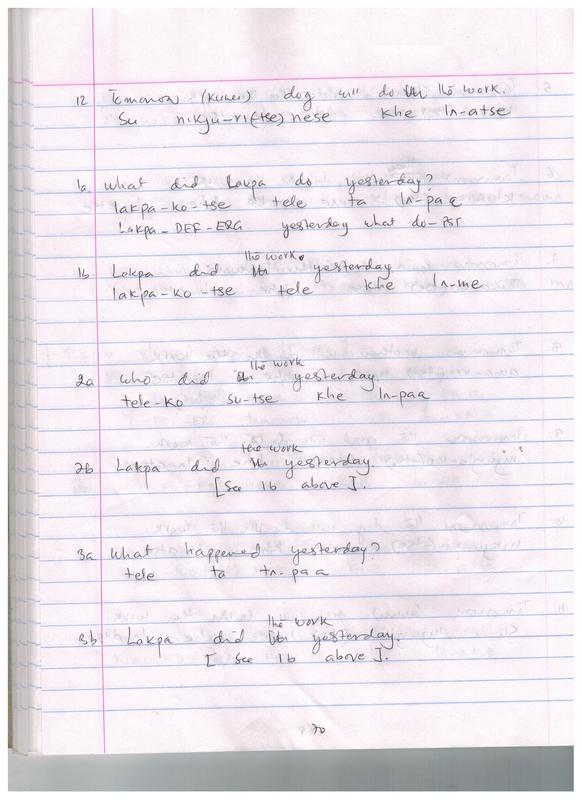 12 Tomorrow (Kukur) dog will do the work.
Su nikju-ri(tse) nese khe lʌ-atse
1a. What did Lakpa do yesterday?
lakpa-ko-tse tele ta lʌ-paa
Lakpa-DEF-ERG yesterday what do-PST
the work.
1b Lakpa did yesterday
lakpa-ko-tse tele khe lʌ-me
the work
2a who did yesterday
tele-ko su-tse khe lʌ-paa
the work
2b Lakpa did yesterday
[See 1b above].
3a What happened yesterday?
tele ta tʌ-paa
the work
3b Lakpa did yesterday.
[See 1b above].